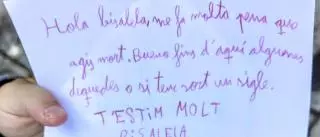 Hola bisabla, me fa molta pena que
agis mort. Bueno fins d'aquí algunes
dequedes o si tens sort un sigle.
T'ESTIM MOLT
BISALELA